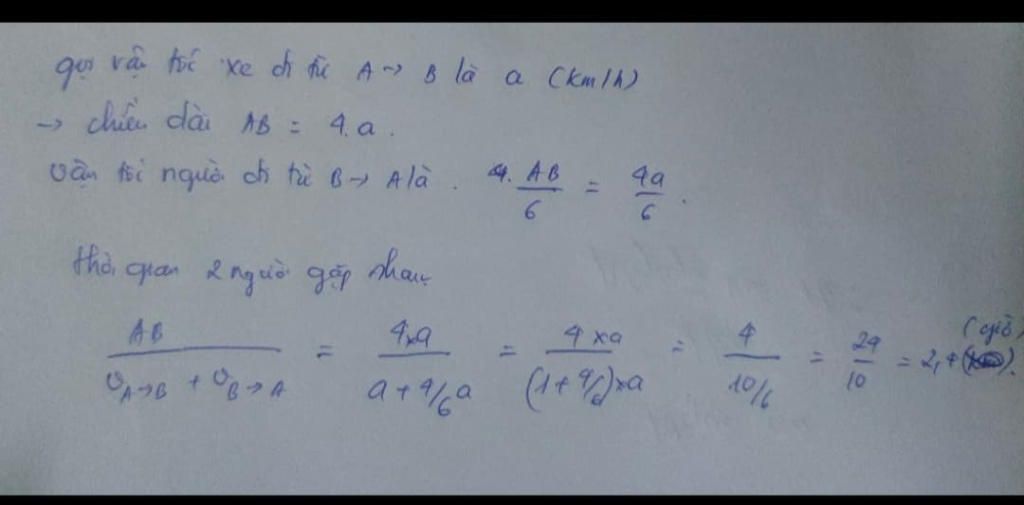 gọi vận tốc xe đi từ A → B là a (km/h)
→ chiều dài AB = 4.a.
Vận tốc người đi từ B → A là . 4. AB/6 = 4a/6 .
thời gian 2 người gặp nhau
AB/(v A→B + v B→A) = 4×a/(a + 4/6 a) = 4×a/((1 + 4/6)×a) = 4/(10/6) = 24/10 = 2,4 (giờ).